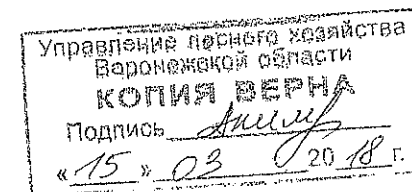 Управление лесного хозяйства
Воронежской области
КОПИЯ ВЕРНА
Подпись
«15» 03 2018 г.